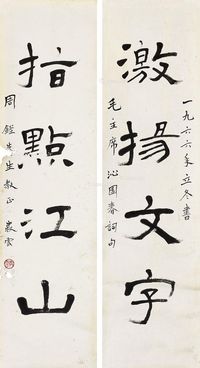 一九六六年立冬書
激揚文字
毛主席沁園春詞句
指點江山
周鏗先生教正 叢雲